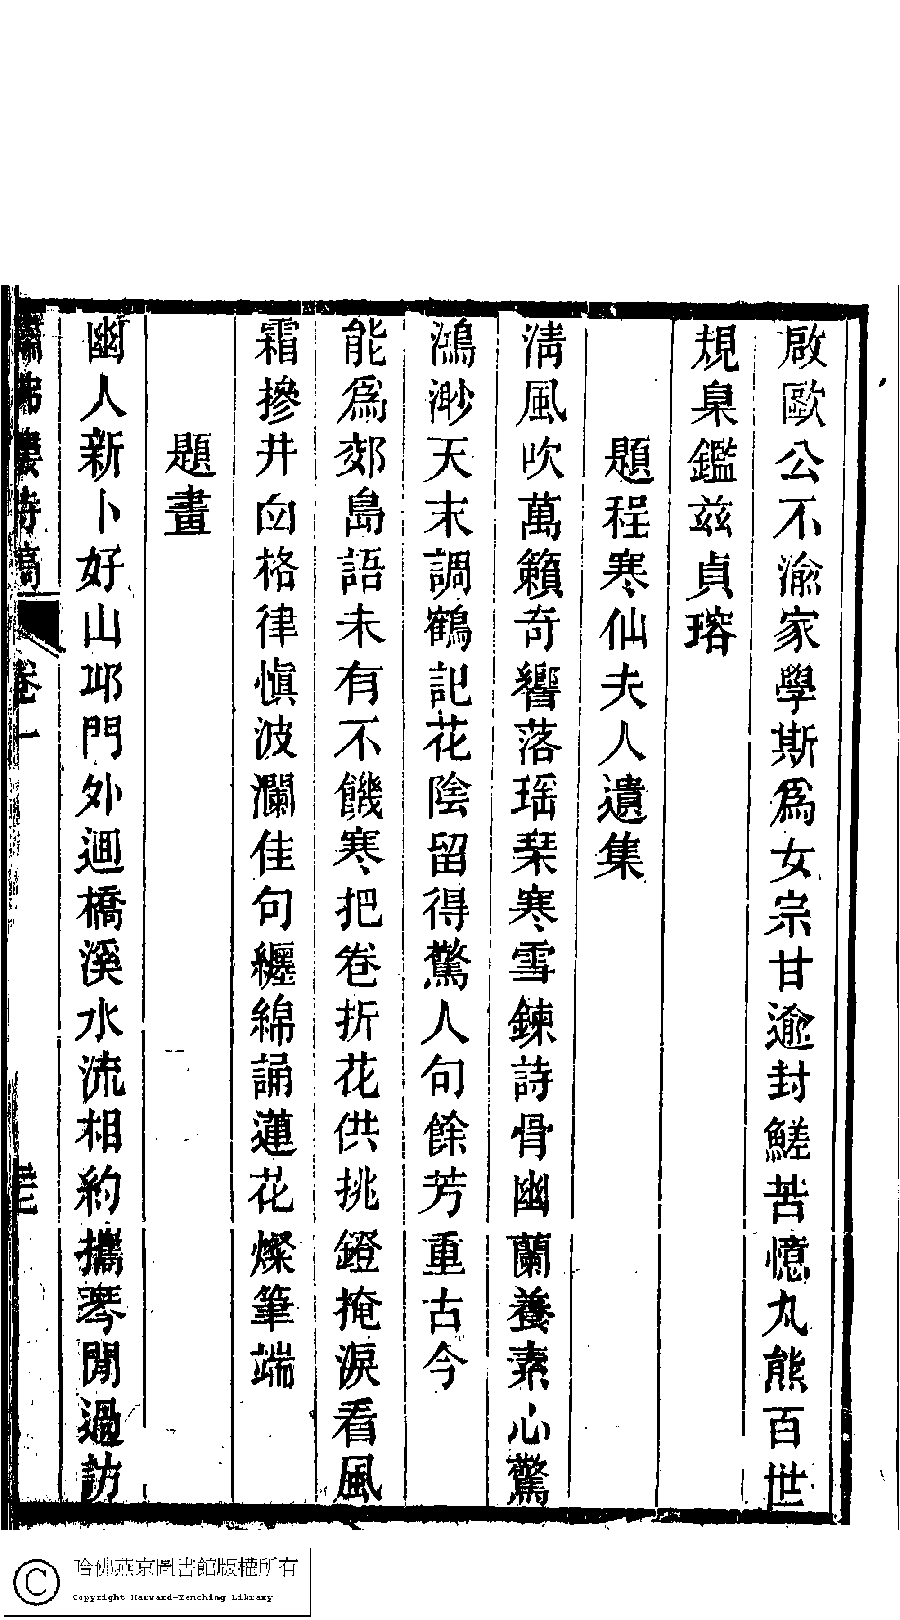 啟歐公不渝家學斯爲女宗甘逾封鮓苦憶丸熊百世
規臬鑑兹貞瑢
題程寒仙夫人遺集
淸風吹萬籟奇響落瑶琹寒雪鍊詩骨幽蘭養素心驚
鴻渺天末調鶴記花陰留得驚人句餘芳重古今
能爲郊島語未有不饑寒把卷折花供挑鐙掩淚看風
霜摻井臼格律愼波瀾佳句纏綿誦蓮花燦筆端
題畫
幽人新卜好山邛門外迴橋溪水流相約攜琴閒過訪
繡佛樓詩稿
卷一
哈佛燕京圖書館版權所有
Copyright Harvard-Yenching Library